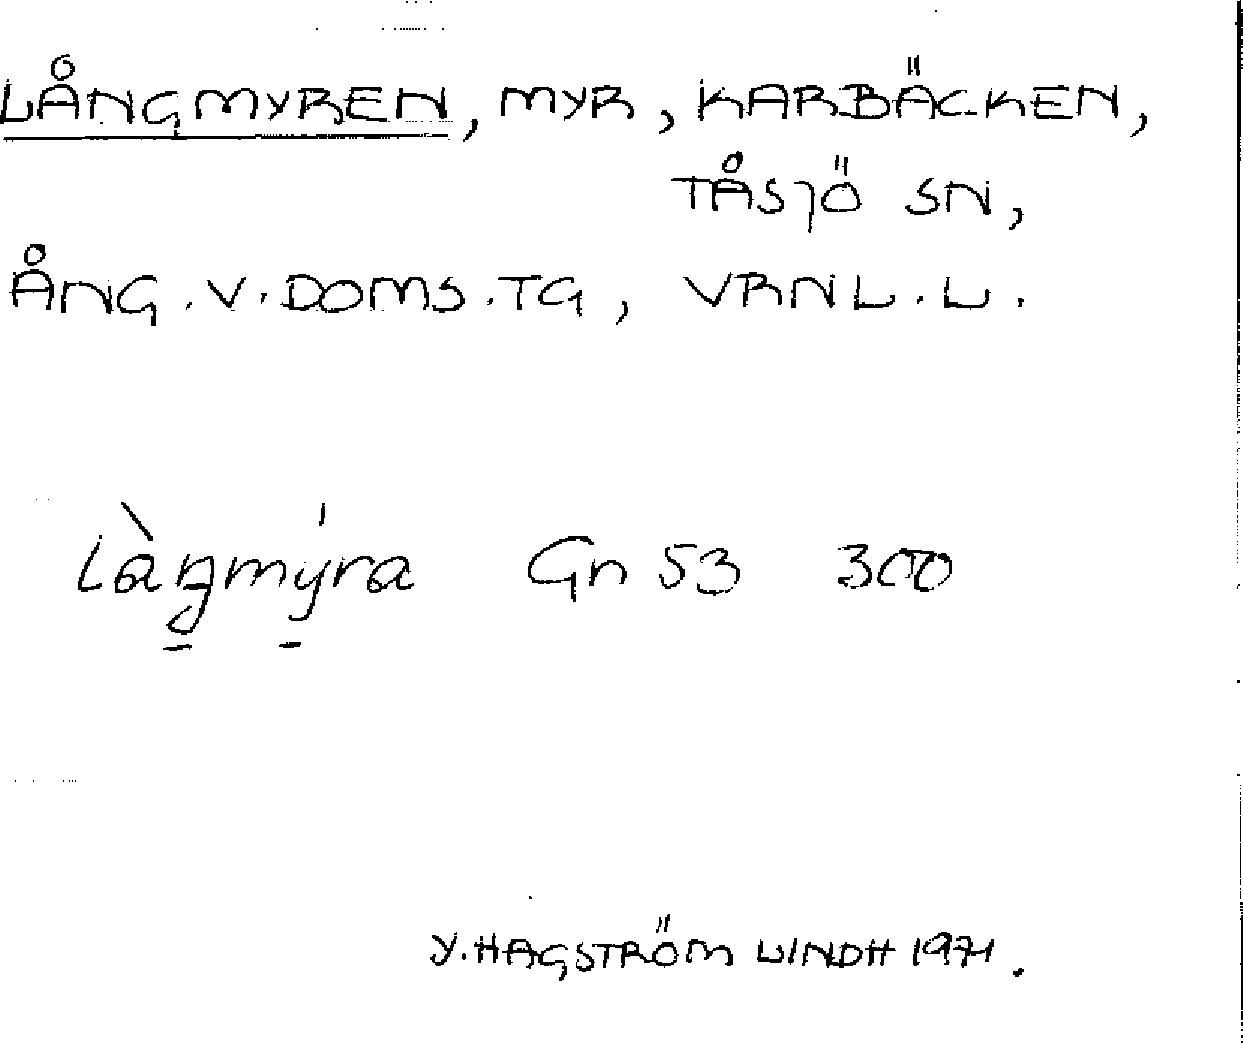 LÅNGMYREN, MYR, KARBÄCKEN,
TÅSJÖ SN,
ÅNG.V.DOMS.TG, VRNL.L.
làŋmýra Gn 53 300
Y.HAGSTRÖM LINDH 1971.